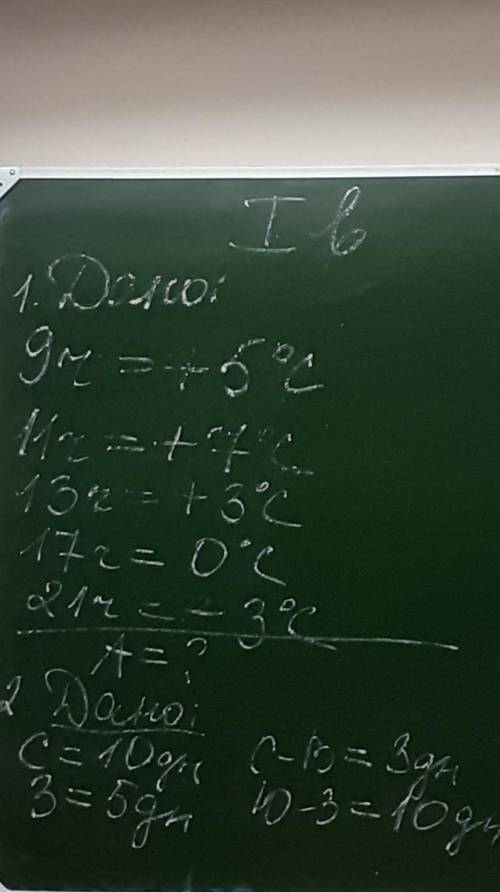 I в
1. Дано:
9ч = +5°C
11ч = +7°C
13ч = +3°C
17ч = 0°C
21ч = -3°C
A = ?
2 Дано:
С = 10дн С-В = 3дн
З = 5дн Ю-З = 10дн